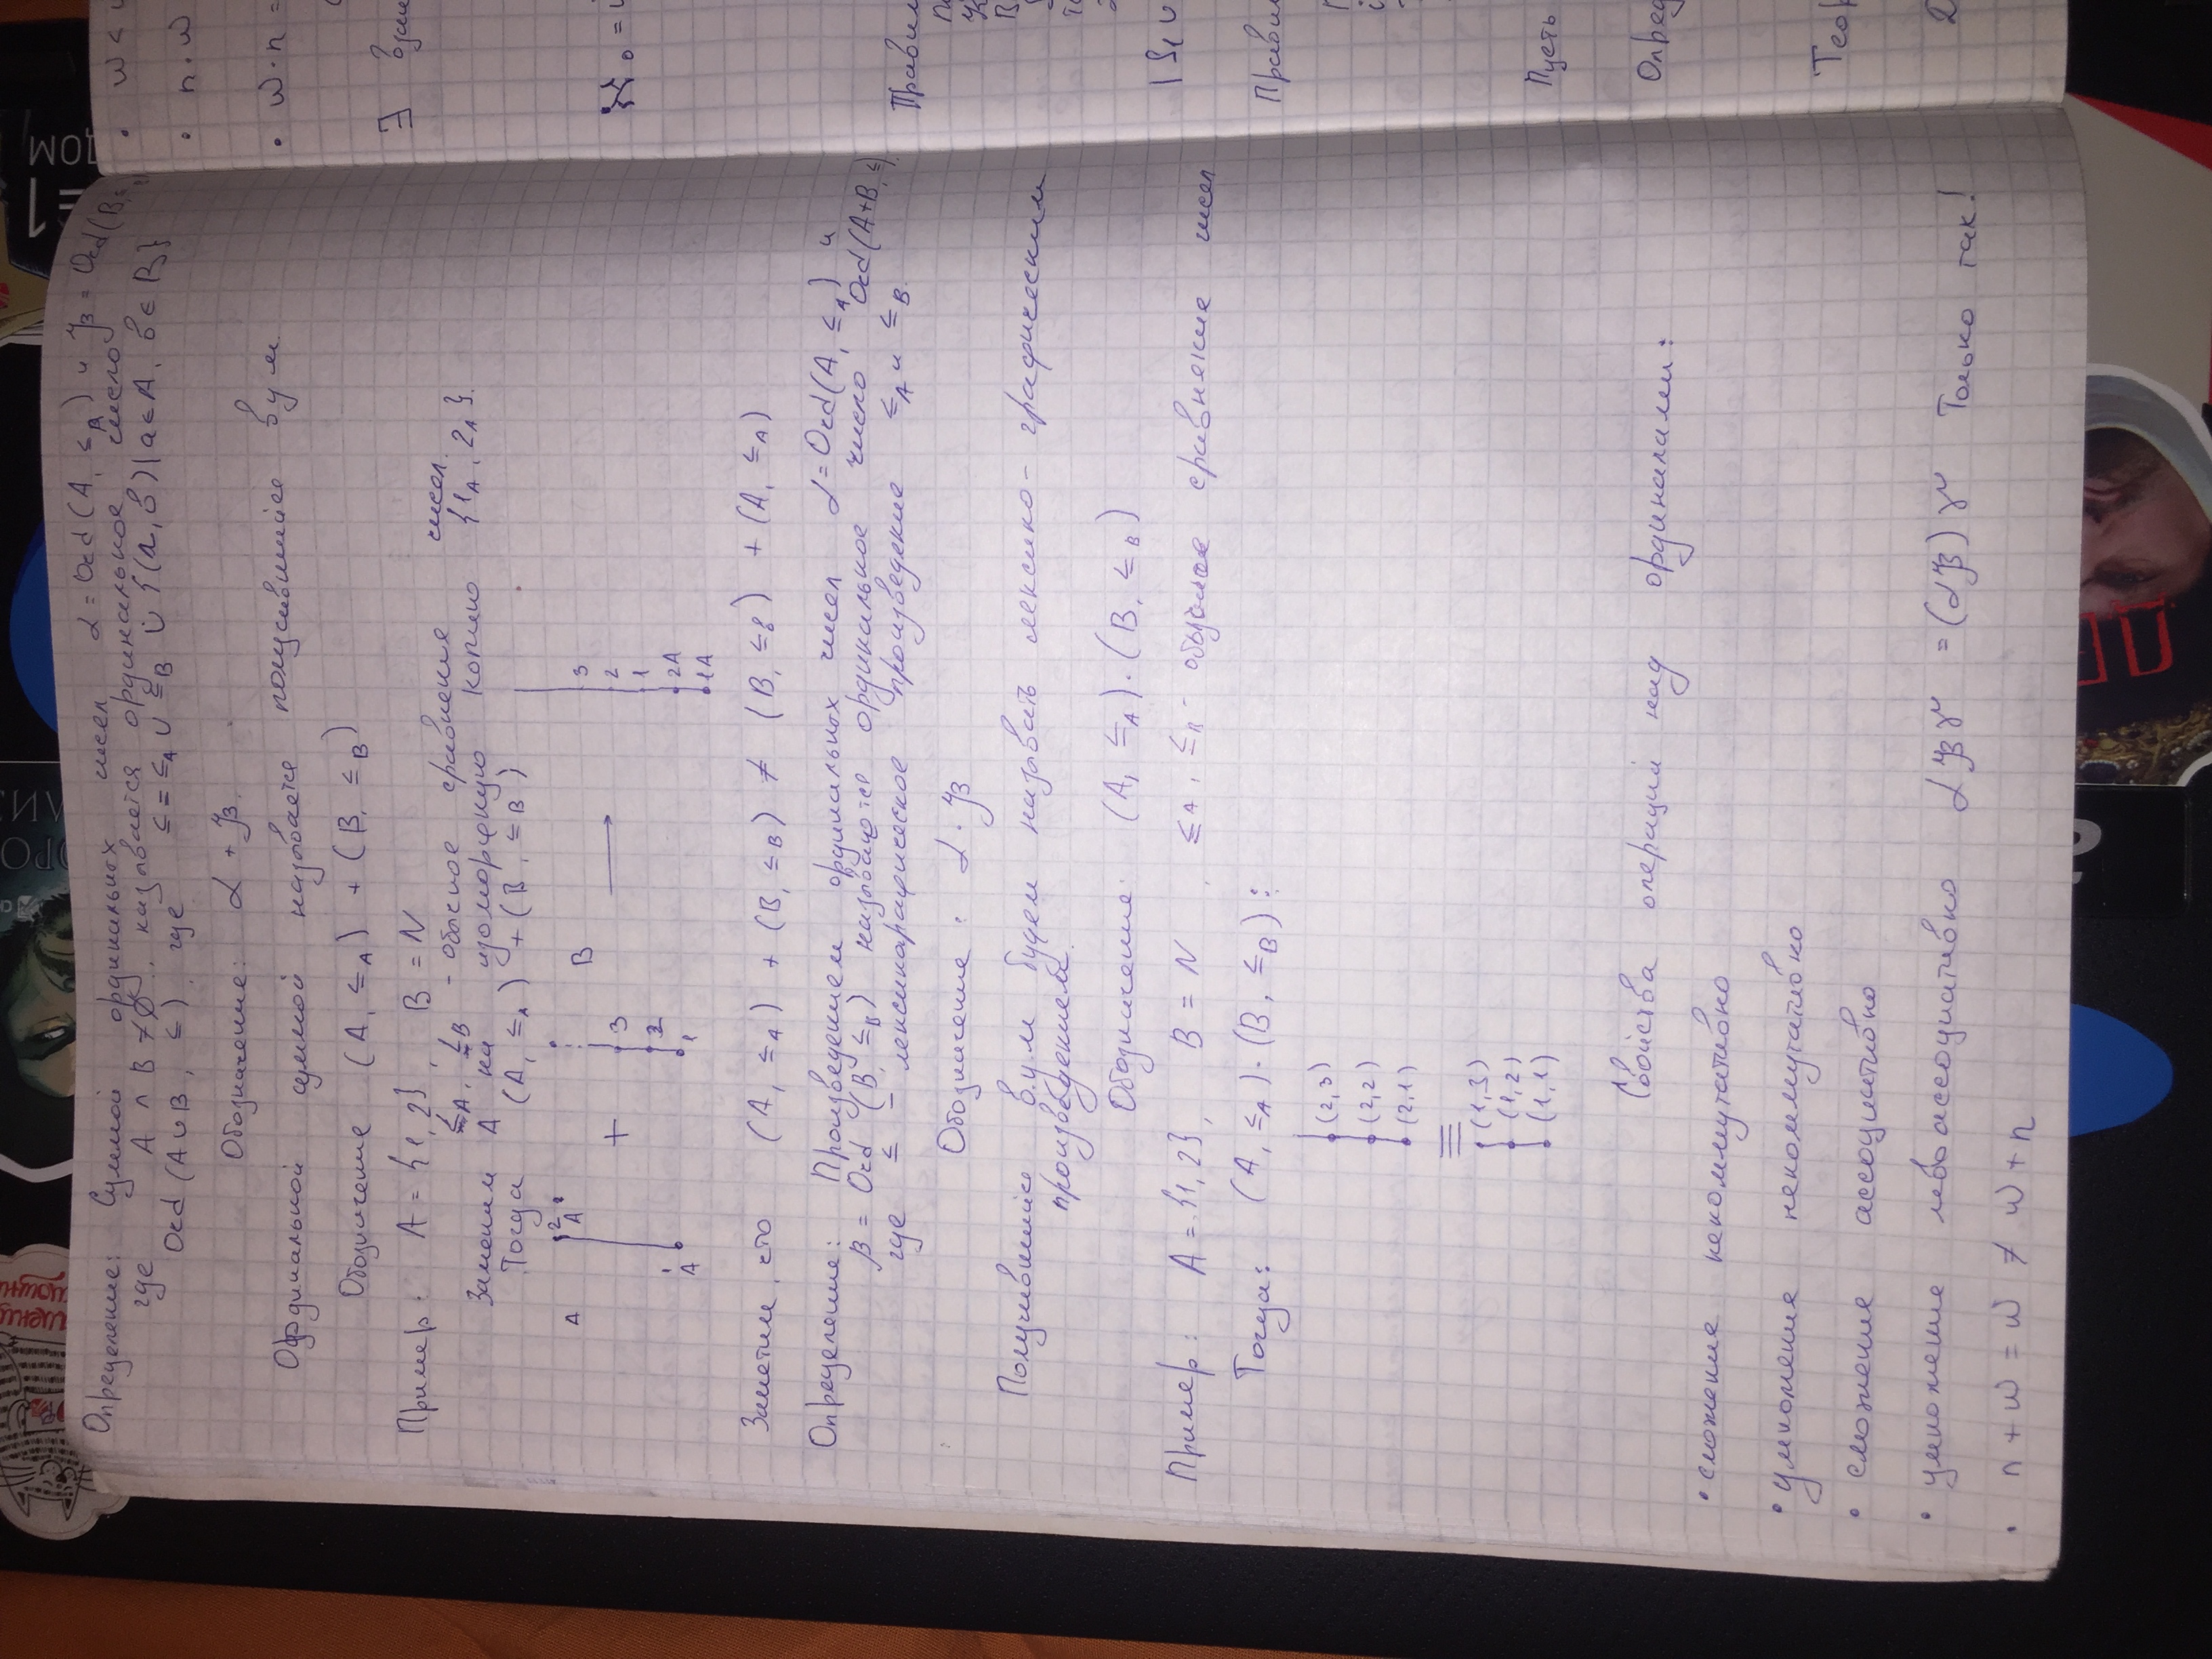 Определение: Суммой ординальных чисел α = Ord(A, ≤A) и β = Ord(B, ≤
где A ∩ B ≠ ∅, называется ординальное число
Ord(A∪B, ≤), где ≤ = ≤A ∪ ≤B ∪ {(a, b) | a ∈ A, b ∈ B}
Обозначение: α + β.
Ординальной суммой называется получившийся вум.
Обозначение (A, ≤A) + (B, ≤B)
Пример: A = {1, 2}, B = N
≤A, ≤B - обычное сравнение чисел.
Заменим A на изоморфную копию {1A, 2A}.
Тогда (A, ≤A) + (B, ≤B)
A 2A + 3 B → 3
2 2
1A 1 1
2A
1A
Заметим, что (A, ≤A) + (B, ≤B) ≠ (B, ≤B) + (A, ≤A)
Определение: Произведением ординальных чисел α = Ord(A, ≤A) и
β = Ord (B, ≤B) называется ординальное число Ord(A+B, ≤),
где ≤ - лексикаграфическое произведение ≤A и ≤B.
Обозначение: α · β
Получившийся в.у.м будем называть лексико-графическим
произведением.
Обозначение: (A, ≤A) · (B, ≤B)
Пример: A = {1, 2}, B = N, ≤A, ≤B - обычное сравнение чисел
Тогда: (A, ≤A) · (B, ≤B):
(2,3)
(2,2)
(2,1)
(1,3)
(1,2)
(1,1)
Свойства операций над ординалами:
• сложение некоммутативно
• умножение некоммутативно
• сложение ассоциативно
• умножение левоассоциативно αβγ = (αβ)γ Только так!
• n + w = w ≠ w + n
• w
• n · w
• w · n =
∃
ℵ0 =
Правил
|S1 ∪
Правил
Пусть
Опред
Теор
=1
ДОМ